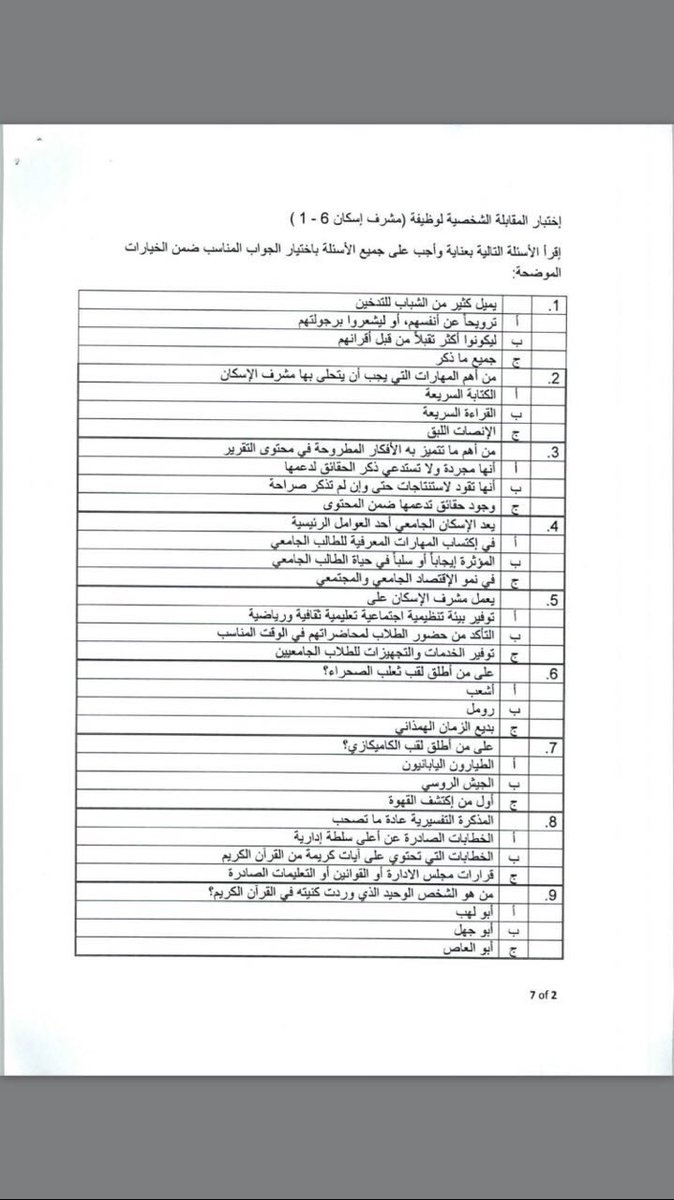 إختبار المقابلة الشخصية لوظيفة (مشرف إسكان 6 - 1 )
إقرأ الأسئلة التالية بعناية وأجب على جميع الأسئلة باختيار الجواب المناسب ضمن الخيارات
الموضحة:
1. يميل كثير من الشباب للتدخين
أ ترويحاً عن أنفسهم، أو ليشعروا برجولتهم
ب ليكونوا أكثر تقبلاً من قبل أقرانهم
ج جميع ما ذكر
2. من أهم المهارات التي يجب أن يتحلى بها مشرف الإسكان
أ الكتابة السريعة
ب القراءة السريعة
ج الإنصات اللبق
3. من أهم ما تتميز به الأفكار المطروحة في محتوى التقرير
أ أنها مجردة ولا تستدعي ذكر الحقائق لدعمها
ب أنها تقود لاستنتاجات حتى وإن لم تذكر صراحة
ج وجود حقائق تدعمها ضمن المحتوى
4. يعد الإسكان الجامعي أحد العوامل الرئيسية
أ في إكتساب المهارات المعرفية للطالب الجامعي
ب المؤثرة إيجاباً أو سلباً في حياة الطالب الجامعي
ج في نمو الإقتصاد الجامعي والمجتمعي
5. يعمل مشرف الإسكان على
أ توفير بيئة تنظيمية اجتماعية تعليمية ثقافية ورياضية
ب التأكد من حضور الطلاب لمحاضراتهم في الوقت المناسب
ج توفير الخدمات والتجهيزات للطلاب الجامعيين
6. على من أطلق لقب ثعلب الصحراء؟
أ أشعب
ب رومل
ج بديع الزمان الهمذاني
7. على من أطلق لقب الكاميكازي؟
أ الطيارون اليابانيون
ب الجيش الروسي
ج أول من إكتشف القهوة
8. المذكرة التفسيرية عادة ما تصحب
أ الخطابات الصادرة عن أعلى سلطة إدارية
ب الخطابات التي تحتوي على آيات كريمة من القرآن الكريم
ج قرارات مجلس الادارة أو القوانين أو التعليمات الصادرة
9. من هو الشخص الوحيد الذي وردت كنيته في القرآن الكريم؟
أ أبو لهب
ب أبو جهل
ج أبو العاص
7 of 2